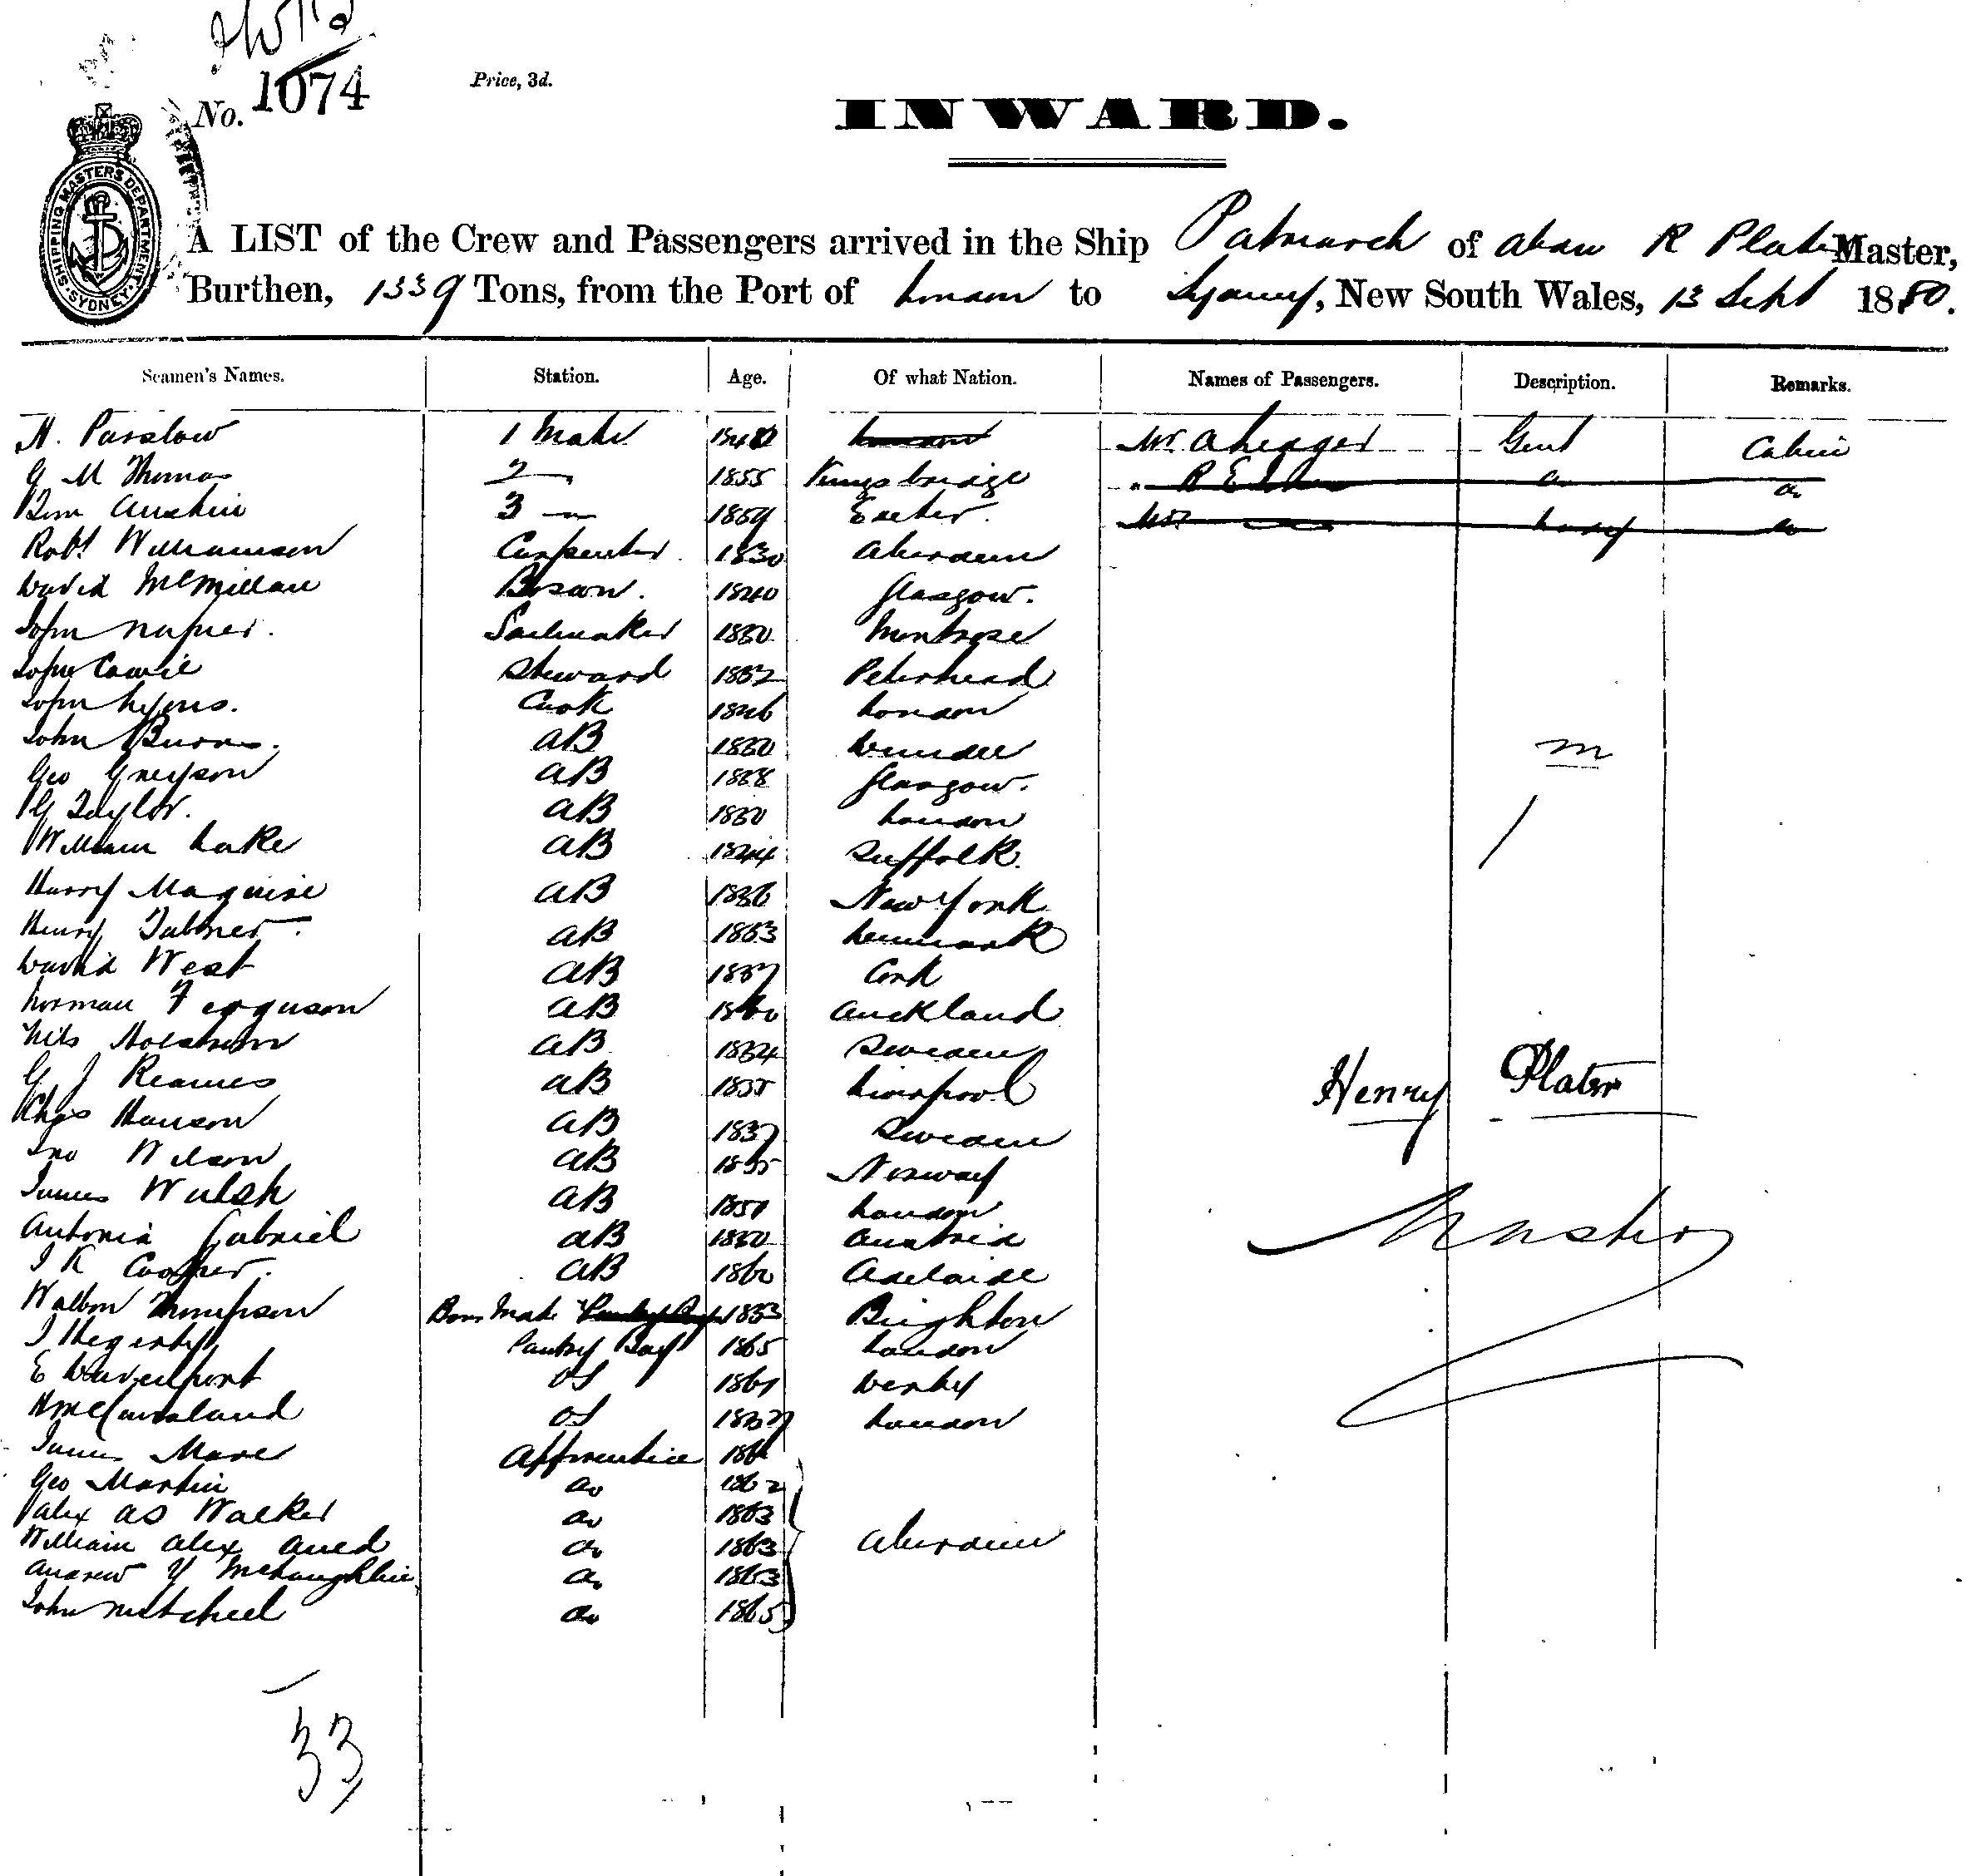 No. 1074
Price, 3d.
INWARD.
SHIPPING MASTERS DEPARTMENT SYDNEY
A LIST of the Crew and Passengers arrived in the Ship Patriarch of Aban R Plater Master,
Burthen, 1339 Tons, from the Port of London to Sydney, New South Wales, 13 Sept 1880.
Seamen's Names. Station. Age. Of what Nation. Names of Passengers. Description. Remarks.
N. Parslow 1 Mate Mr. Gent Cabin
G M Thomas 2 1855 Kingsbridge
Austin 3 1859 Exeter.
Robt Williamson Carpenter 1830 Aberdeen
David McMillan Bosun. 1840 Glasgow.
John Napier. Sailmaker 1830 Montrose
John Cowie Steward 1852 Peterhead
John Lyons. Cook 1846 London
John Burns. AB Dundee
m
Geo Greyson AB Glasgow.
G Taylor. AB London
William Lake AB 1844 Suffolk
Harry Maguire AB New York
Henry AB 1853 Denmark
David West AB 1857 Cork
Norman Ferguson AB 1860 Auckland
Nils AB 1834 Sweden
G J Reames AB 1855 Liverpool
Henry Plater
Chas Hanson AB 1837 Sweden
Jno Wilson AB 1855 Norway
James Walsh AB 1851 London
Master
Antonia Gabriel AB Austria
J R Cooper. AB 1860 Adelaide
Walton Thompson Bosn Mate 1853 Brighton
J Hegerty Pantry Boy 1865 London
E Davenport OS 1861 Derby
OS London
James Mare Apprentice
Geo Martin do 1862
Alex as Walker do 1863
William Alex Aued do 1863 Aberdeen
Andrew Y McLaughlin do 1863
John Mitchell do 1865
33